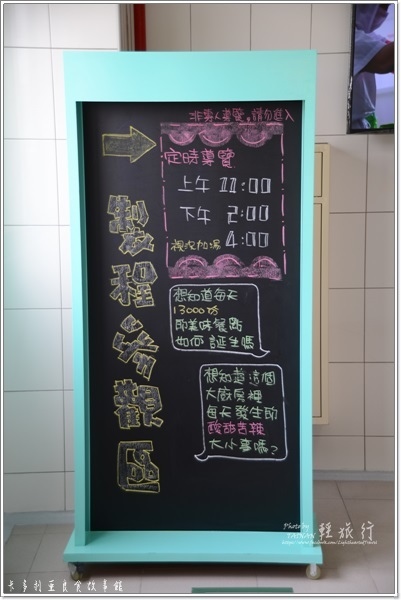 非專人導覽，請勿進入
定時導覽
上午 11:00
下午 2:00
視況加場 4:00
製程參觀區
想知道每天
13000份
的美味餐點
如何誕生嗎
想知道這個
大廚房裡
每天發生的
酸甜苦辣
大小事嗎?
Photo by
輕旅行
卡多利亞良食故事館